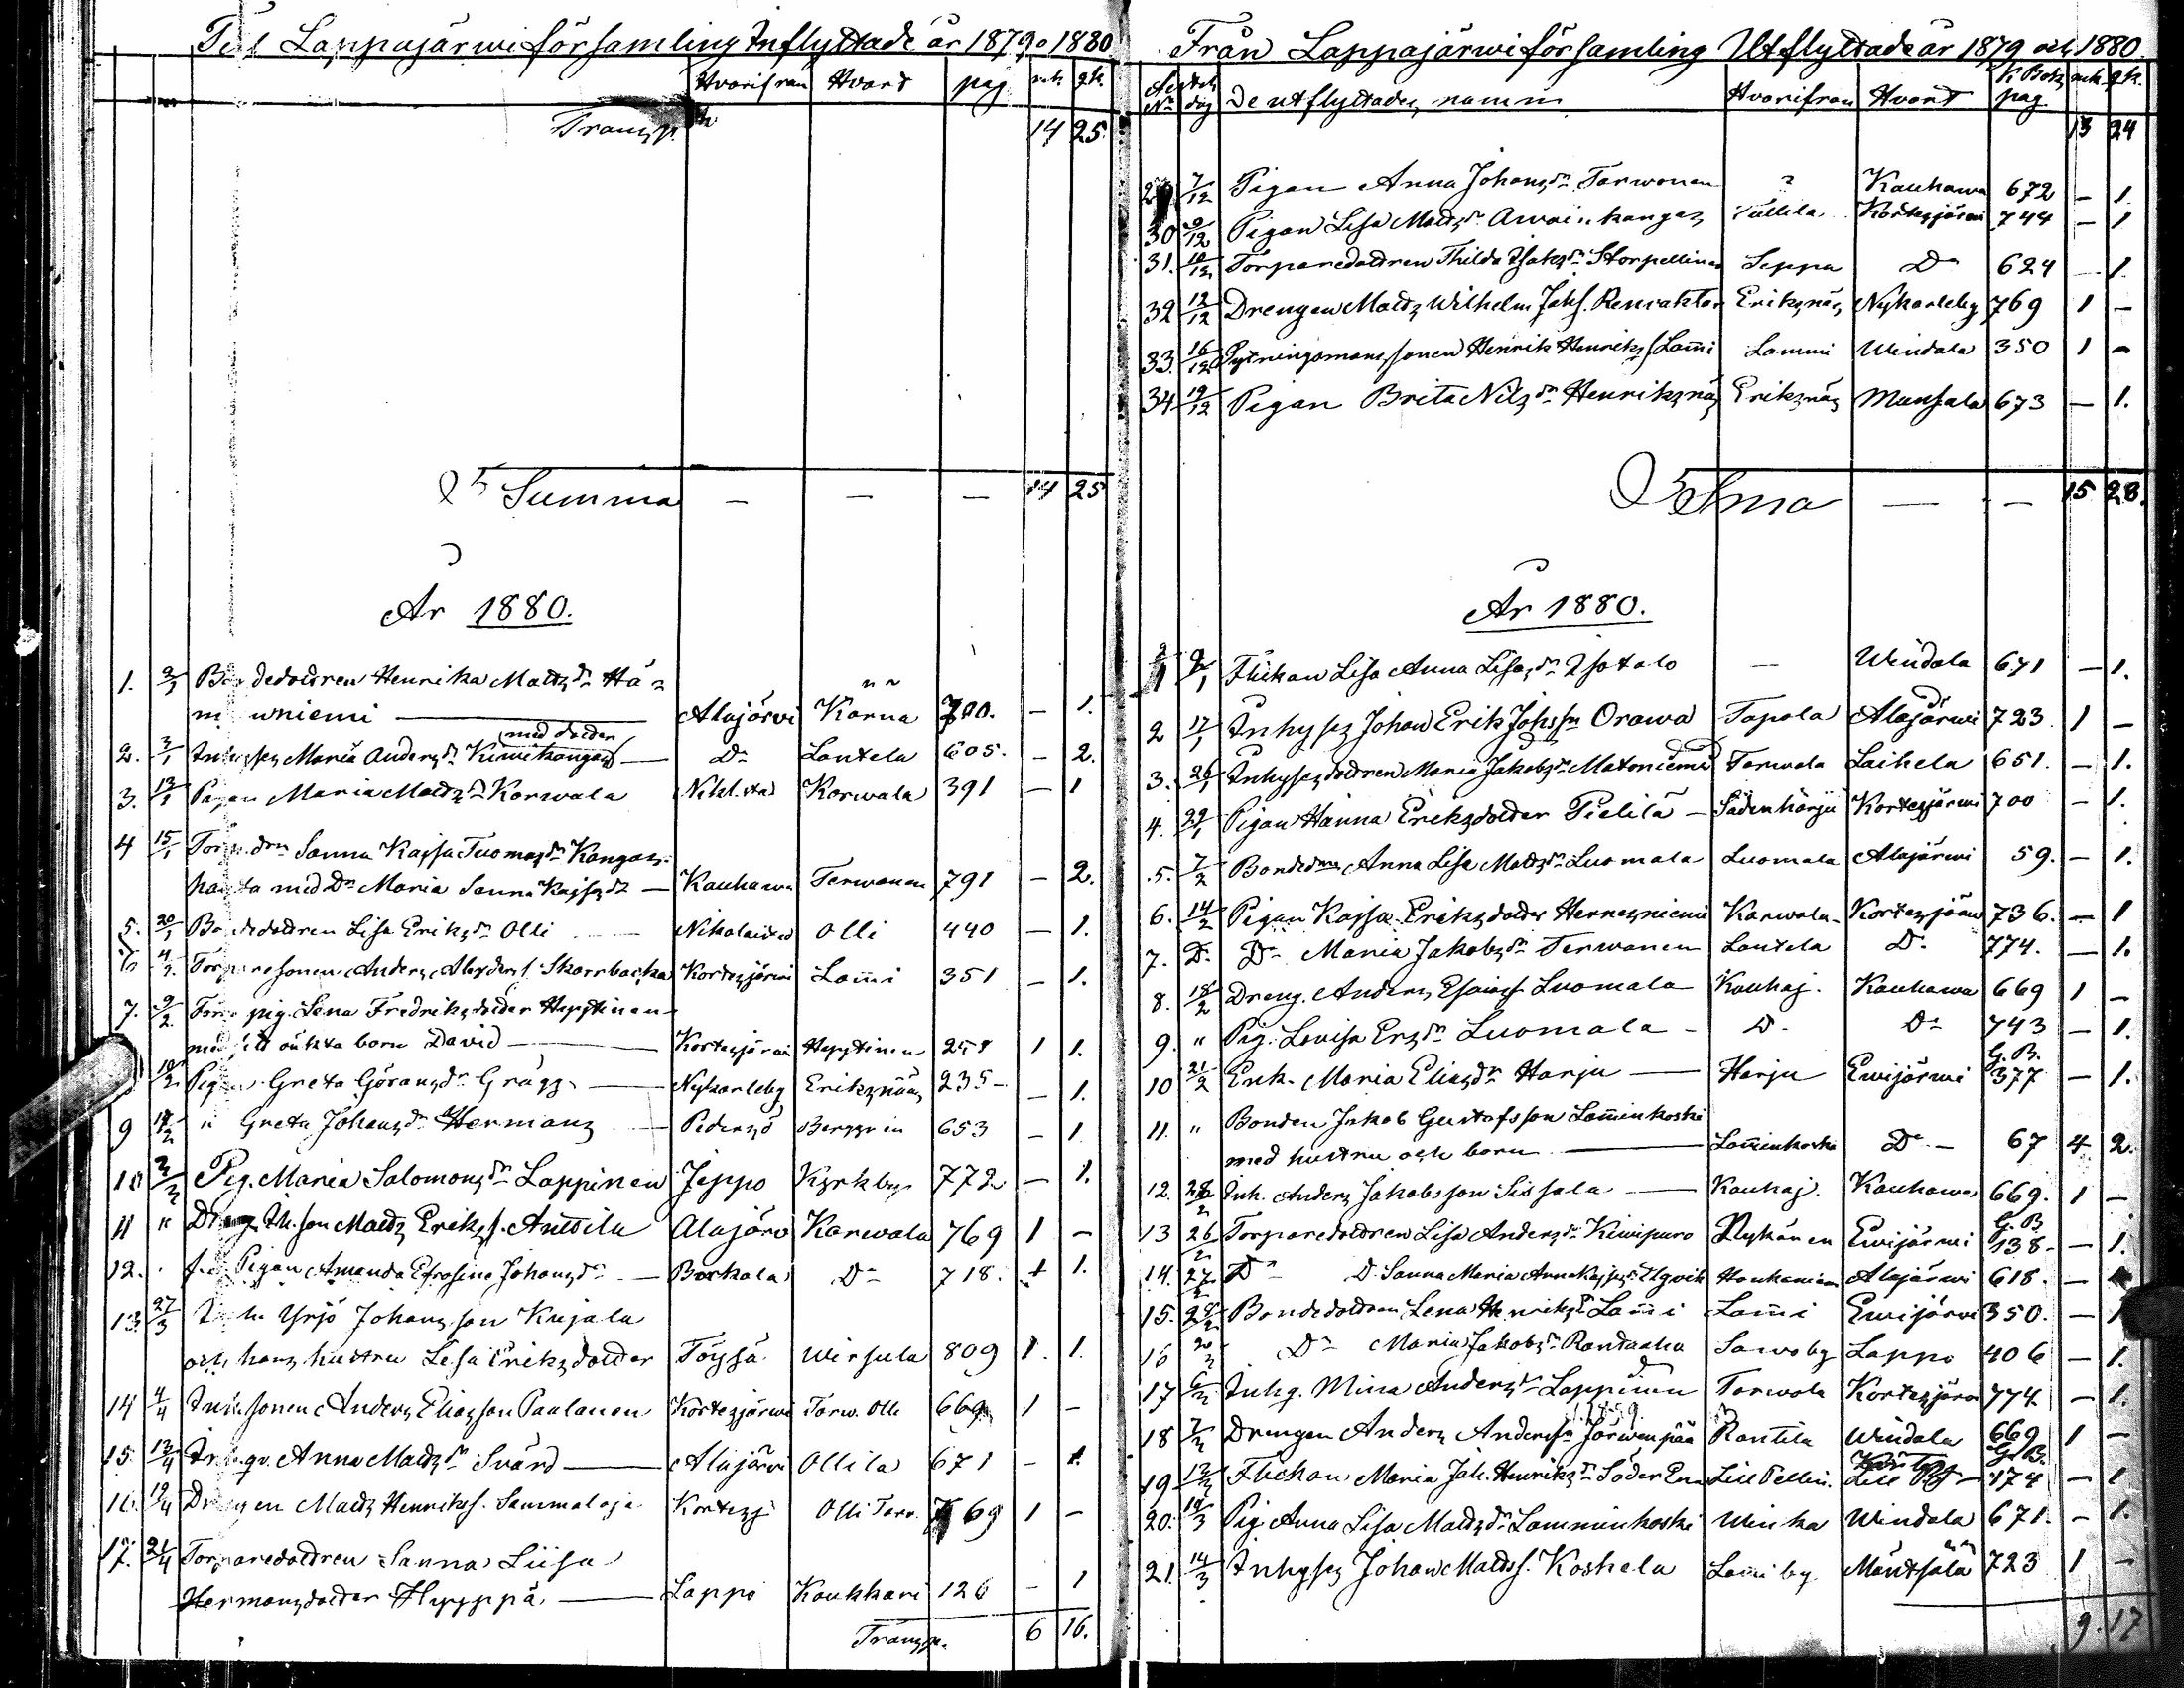 Till Lappajärwi församling Inflyttade år 1879 o 1880
Hvarifrån Hvart pag mk. qk.
Transp. 14 25.
Summa — — — 14 25
År 1880.
1. 2/1 Bondedottren Henrika Matts dr Hä-
niemi — Alajärvi Kärnä 700. — 1.
med dotter
2. 3/1 Inhyses Maria Anders dr Kiwikangas — Do Lantela 605. — 2.
3. 13/1 Pigan Maria Matts dr Korwala Nikl.stad Korwala 391 — 1
4 15/1 Torp. drn Sanna Kajsa Tuomas dr Kangas-
harju med Dr Maria Sanna Kajsa dr — Kauhawa Terwonen 791 — 2.
5. 20/1 Bondedottren Lisa Eriks dr Olli — Nikolaistad Olli 440 — 1.
6 4/2 Torparesonen Anders Alexanders. Skarrbacka Kortesjärvi Lam̄i 351 — 1.
7. 9/2 Torp. pig. Lena Fredriks dotter Hepptinen
med sitt oäkta barn David — Kortesjärvi Hepptinen 251 1 1.
10/2 Pigan Greta Görans dr Gräggs — Nykarleby Eriksnäs 235 — 1.
9 14/2 " Greta Johans dr Hermans — Pedersö Berggrin 653 — 1
10 2/3 Pig. Maria Salomons dr Lappinen Jeppo Kyrkby 772 — 1.
11 " Dreng. Ih. son Matts Eriks s. Anttila Alajärv Karwala 769 1 —
12. Pigan Amanda Efrosina Johans dr — Borkala Do 718. 1.
13. 27/3 Yrjö Johansson Kujala
och hans hustru Lisa Eriks dotter Töysä Wirsula 809 1. 1.
14 4/4 Inh. sonen Anders Eliasson Paalanen Kortesjärwi Tarw. Olli 669 1 —
15. 13/4 Inh. qv. Anna Matts dr Svärd — Alajärvi Ollila 671 — 1.
16. 19/4 Drengen Matts Henriks s. Sammaloja Kortesj Olli Tarv. 769 1 —
17. 21/4 Torparedottren Sanna Liisa
Hermans dotter Hyyppä — Lappo Kaukkari 126 — 1
Transp. 6 16.
Från Lappajärwi församling Utflyttade år 1879 och 1880.
No dag De utflyttades namn Hvarifrån Hvart K Boks pag. mk. qk.
13 24
29 7/12 Pigan Anna Johans dr Tarwonen ? Kauhawa 672 — 1.
30 9/12 Pigan Lisa Matts dr kangas Tullila Kortesjärwi 744 — 1
31. 10/12 Torparedottren Thilda Isaks dr Storpellinen Seppä Do 624 — 1.
32 12/12 Drengen Matts Wilhelm Johs. Eriksnäs Nykarleby 769 1 —
33. 16/12 Henrik Henriks s Lam̄i Lammi Windala 350 1 —
34 19/12 Pigan Brita Nils dr Henriksnäs Eriksnäs Munsala 673 — 1.
Sma — — 15 28.
År 1880.
1 9/1 Flickan Lisa Anna Lisas dr Isotalo — Windala 671 — 1.
2 17/1 Inhyses Johan Erik Johs sn Orawa Tapola Alajärwi 723 1 —
3. 26/1 Inhyses dottren Maria Jakobs dr Matoniemi Tarwola Laihela 651. — 1.
4. 29/1 Pigan Hanna Eriks dotter Pielilä — Södenharju Kortesjärwi 700 — 1.
5. 7/2 Bonde drn Anna Lisa Matts dr Luomala Luomala Alajärwi 59. — 1.
6. 14/2 Pigan Kajsa Eriks dotter Hernesniemi Karwala Kortesjärvi 736. — 1
7. D. Dr Maria Jakobs dr Terwonen Lantela Do 774. — 1.
8. 18/2 Dreng. Anders Esaias s Luomala Kauhaj. Kauhawa 669 1 —
9. " Pig. Lovisa Ers dr Luomala — D. Do 743 — 1.
10 21/2 Enk. Maria Elias dr Harju — Harju Ewijärwi G.B. 377 — 1.
11. " Bonden Jakob Gustafsson Lam̄inkoski
med hustru och barn — Lam̄inkoski Do — 67 4 2.
12. 28/2 Inh. Anders Jakobsson Sissala — Kauhaj. Kauhawa 669. 1 —
13 26/2 Torparedottren Lisa Anders dr Kiwipuro Nykänen Ewijärwi G.B 138. — 1.
14. 27/2 Do D. Sanna Maria Anna Kajsas dr Elgvik Alajärwi 618. —
15. 28/2 Bondedottren Lena Henriks dr Lam̄i Lam̄i Ewijärvi 350. — 1
16 Do Maria Jakobs dr Rantaaho Sawoby Lappo 406 — 1.
17 6/3 Inhg. Mina Anders dr Lappinen Tarwola Kortesjärvi 774. — 1.
18 7/3 Drengen Anders Anders sn Järwenpää Rantila Windala 669 1 —
19 12/3 Flickan Maria Joh. Henriks dr Söder Lill Pellin. G.B. 174 — 1
20. 14/3 Pig Anna Lisa Matts dr Lamminkoski Winka Windala 671. — 1.
21. 14/3 Inhyses Johan Matts s. Koskela Lam̄iby Mäntsälä 723 1 —
9. 17